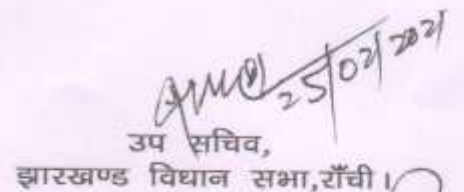 25/02/2021
उप सचिव,
झारखण्ड विधान सभा,राँची।